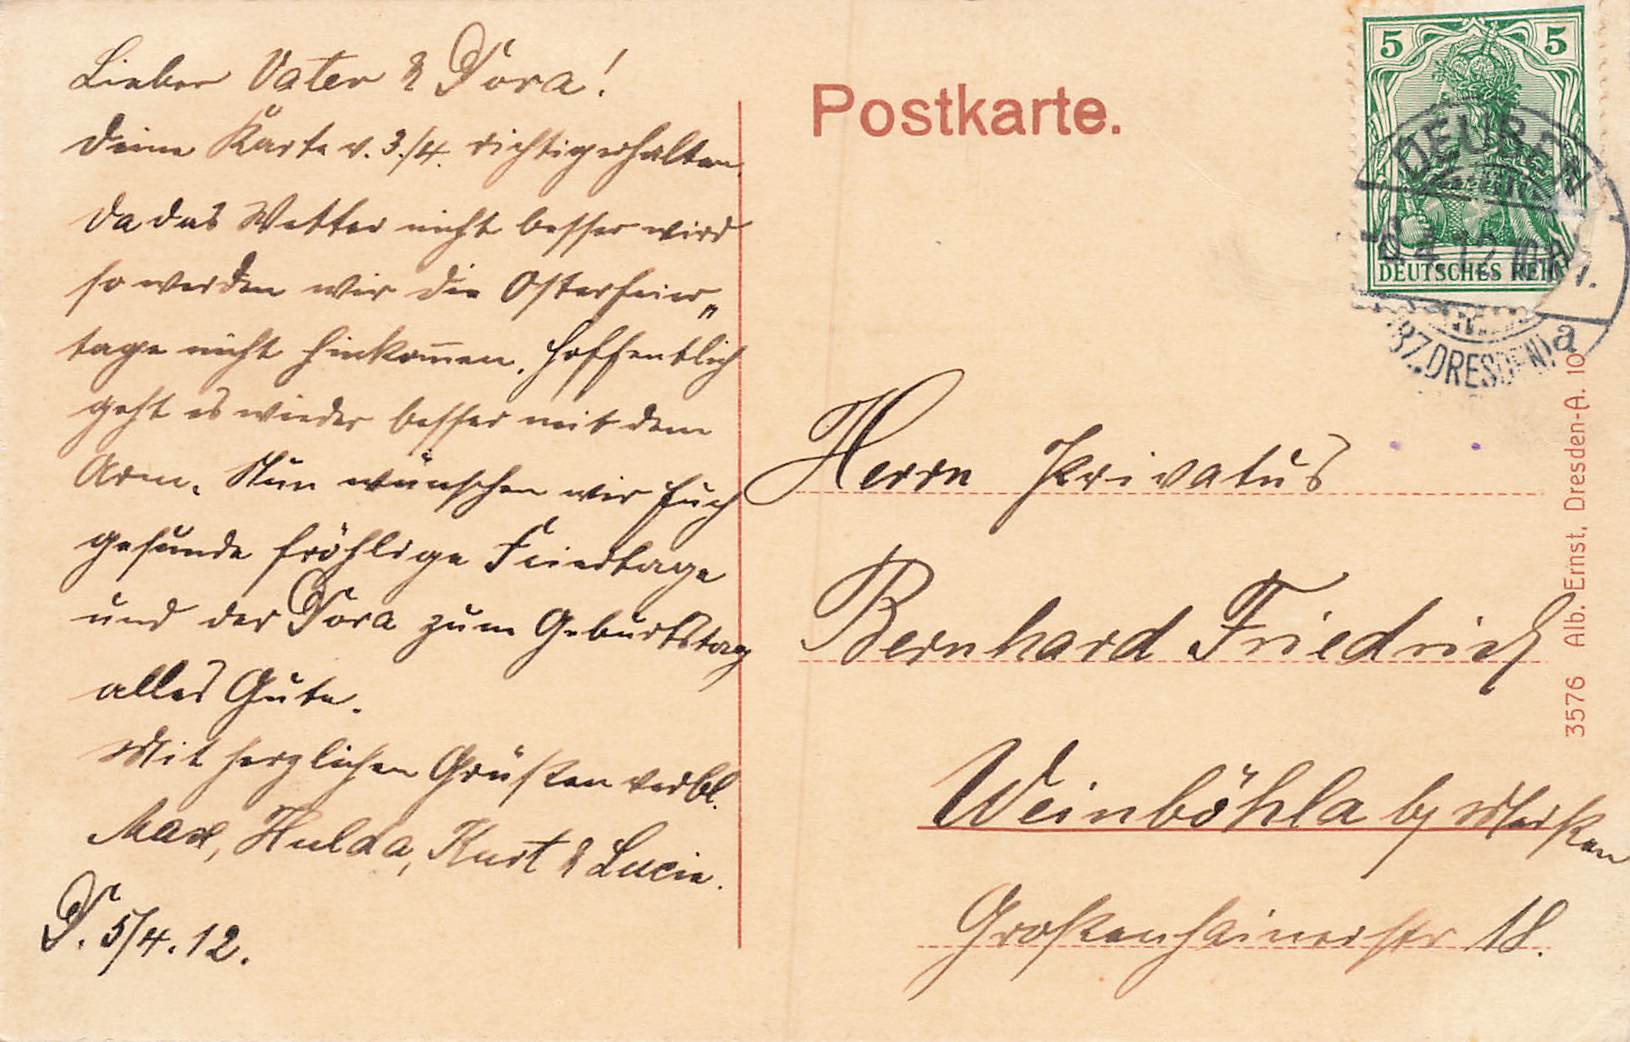 Lieber Vater & Dora!
Deine Karte v. 3./4. richtig erhalten.
da das Wetter nicht besser wird
so werden wir die Osterfeier„
tage nicht hinkom̅en. Hoffentlich
geht es wieder besser mit dem
Arm. Nun wünschen wir Euch
gesunde fröhlige Feiertage
und der Dora zum Geburtstag
alles Gute.
Mit herzlichen Grüßen verbl.
Max, Hulda, Kurt & Lucie.
D. 5/4. 12.
Postkarte.
5 5
DEUTSCHES REICH
DEUBEN
(BZ. DRESDEN) a
Herrn Privatus
Bernhard Friedrich
Weinböhla b/ Meißen
Großenhainerstr 18.
3576 Alb. Ernst, Dresden-A. 10